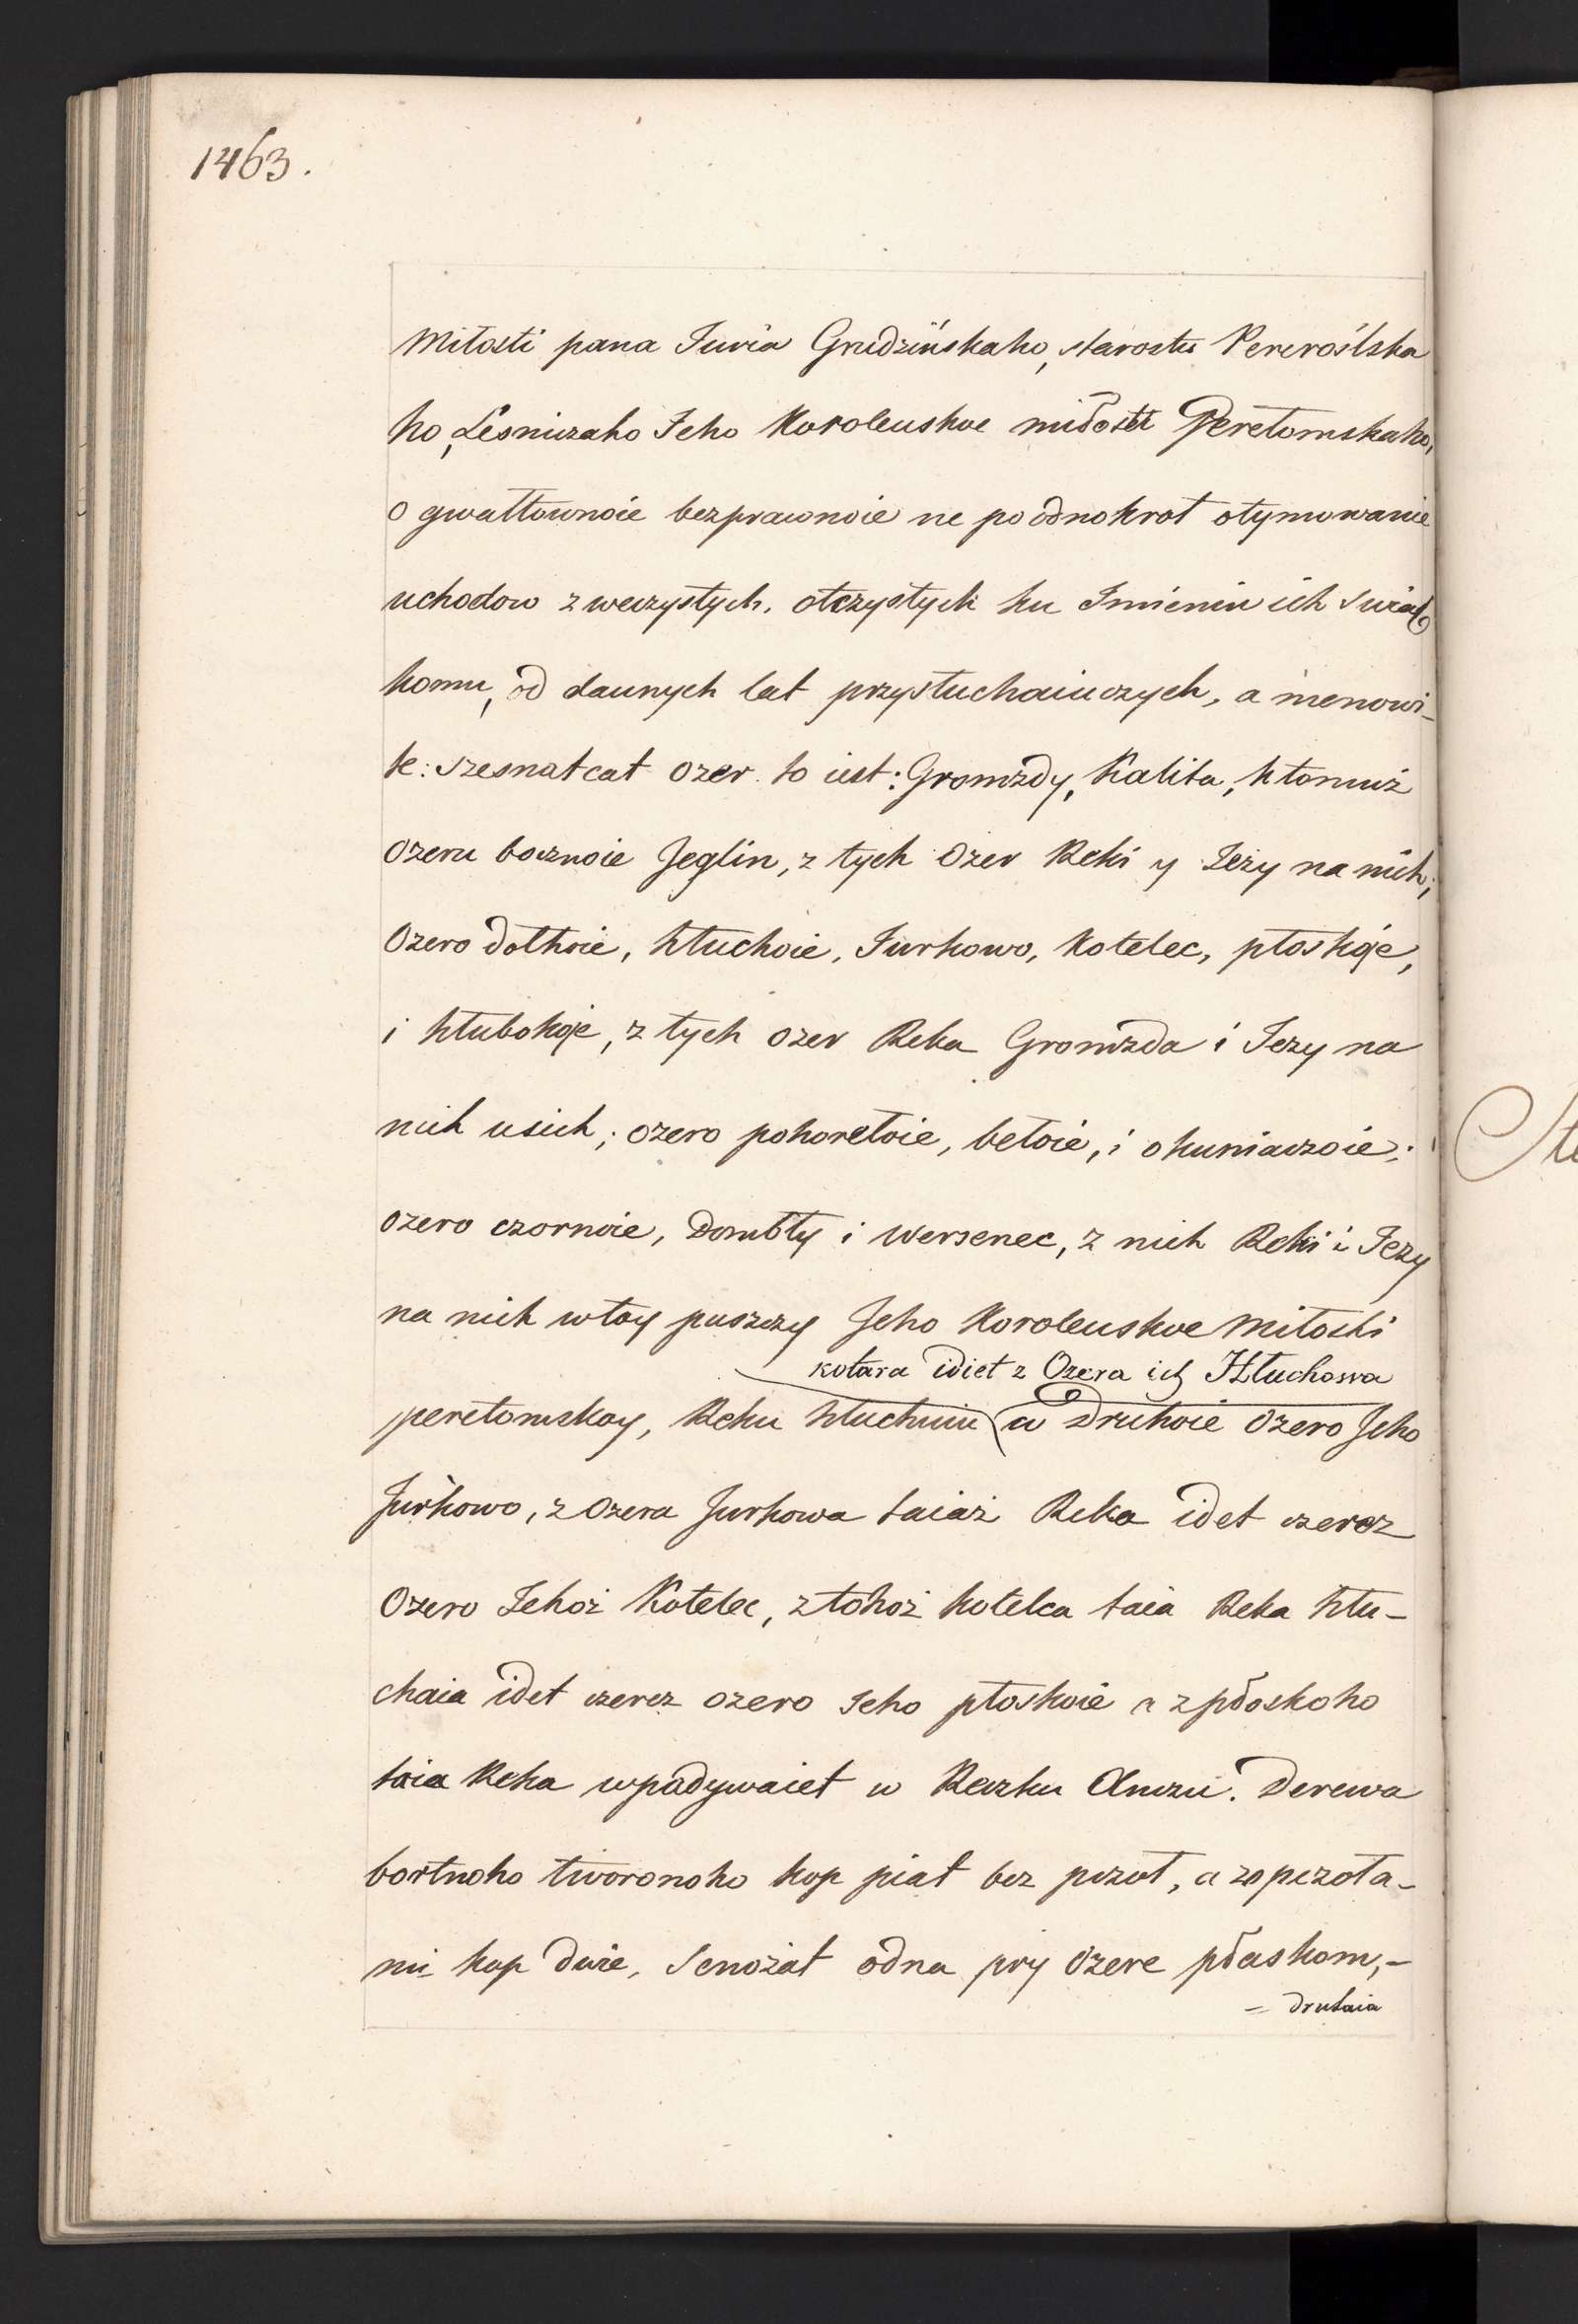 1463.
Miłosti pana Juria Grudzińskaho, starostu Pereroślska
ho, Leśniczaho Jeho Koroleuskoe miłosti Peretomskaho,
o gwałtownoie bezprawnoie ne po odnokrot otymowanie
uchodow zweczystych, otczystych ku Imieniu ich Swiad
komu, od daunych lat przysłuchaiuczych, a menowi-
te: szesnatcat ozer to iest: Gromzdy, Kalita, ktomuż
Ozeru bocznoie Jeglin, z tych Ozer Reki y Jezy na nich;
Ozero dołhoie, hłuchoie, Jurkowo, Kotelec, płoskoje,
i hłubokoje, z tych ozer Reka Gromzda i Jezy na
nich usich; ozero pohorełoie, bełoie, i okuniaczoie;
ozero czornoie, Dombły i Wersenec, z nich Reki i Jezy
na nich wtoy puszczy Jeho Koroleuskoe Miłosti
kotara idiet z Ozera ich Hłuchowa
peretomskoy, Reku hłuchuiu w Druhoie Ozero Jeho
Jurkowo, z Ozera Jurkowa taiaż Reka idet czerez
Ozero Jehoż Kotelec, ztohoż kotelca taia Reka hłu-
chaia idet czerez ozero Jeho płoskoie a zpłoskoho
taia Reka wpadywaiet w Reczku Anczu. Derewa
bortnoho tworonoho kop piat bez pczoł, a zopczoła-
mi kop dwie, Senożat odna pry Ozere płaskom,-
- druhaia
Ste